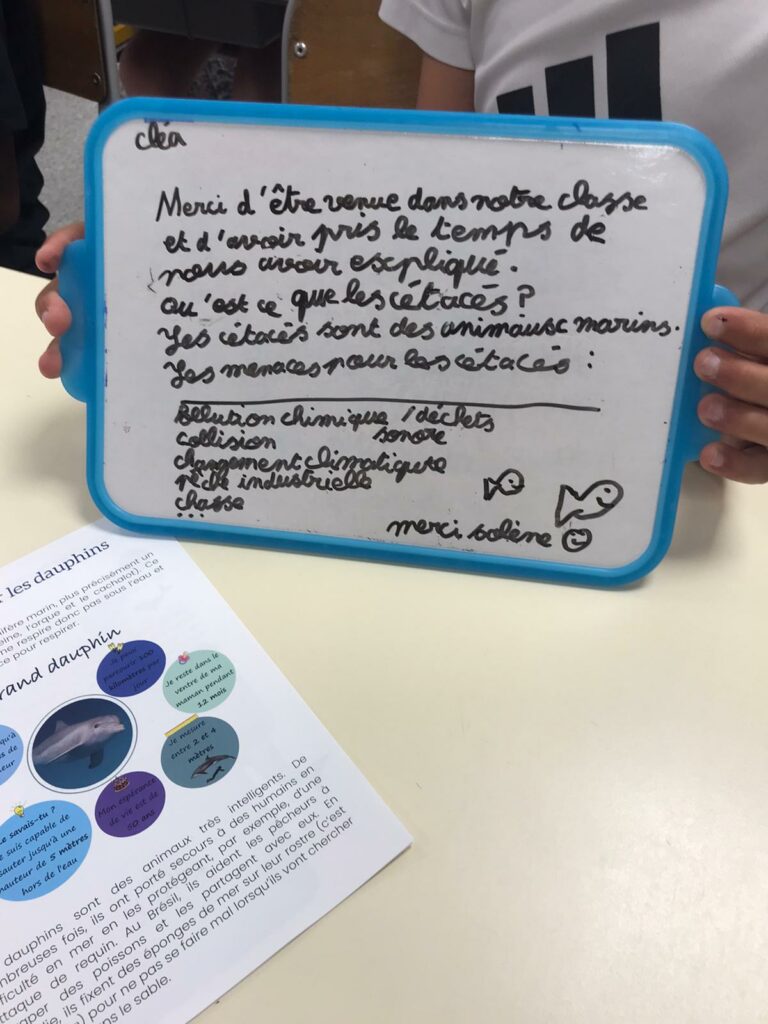 cléa
Merci d'être venue dans notre classe
et d'avoir pris le temps de
nous avoir escpliqué.
Qu'est ce que les cétacés?
Les cétacés sont des animausc marins.
Les menaces pour les cétacés :
Pollution chimique / déchets
sonore
collision
changement climatique
pêche industrielle
chasse
...
merci solène
r les dauphins
ifère marin, plus précisément un
eine, l'orque et le cachalot). Ce
ne respire donc pas sous l'eau et
ce pour respirer.
rand dauphin
Je peux
parcourir 100
kilomètres par
jour
Je reste dans le
ventre de ma
maman pendant
12 mois
Je mesure
entre 2 et 4
mètres
Mon espérance
de vie est de
50 ans
Le savais-tu ?
Je suis capable de
sauter jusqu'à une
hauteur de 5 mètres
hors de l'eau
dauphins sont des animaux très intelligents. De
mbreuses fois, ils ont porté secours à des humains en
fficulté en mer en les protégeant, par exemple, d'une
ttaque de requin. Au Brésil, ils aident les pêcheurs à
aper des poissons et les partagent avec eux. En
die, ils fixent des éponges de mer sur leur rostre (c'est
) pour ne pas se faire mal lorsqu'ils vont chercher
ns le sable.